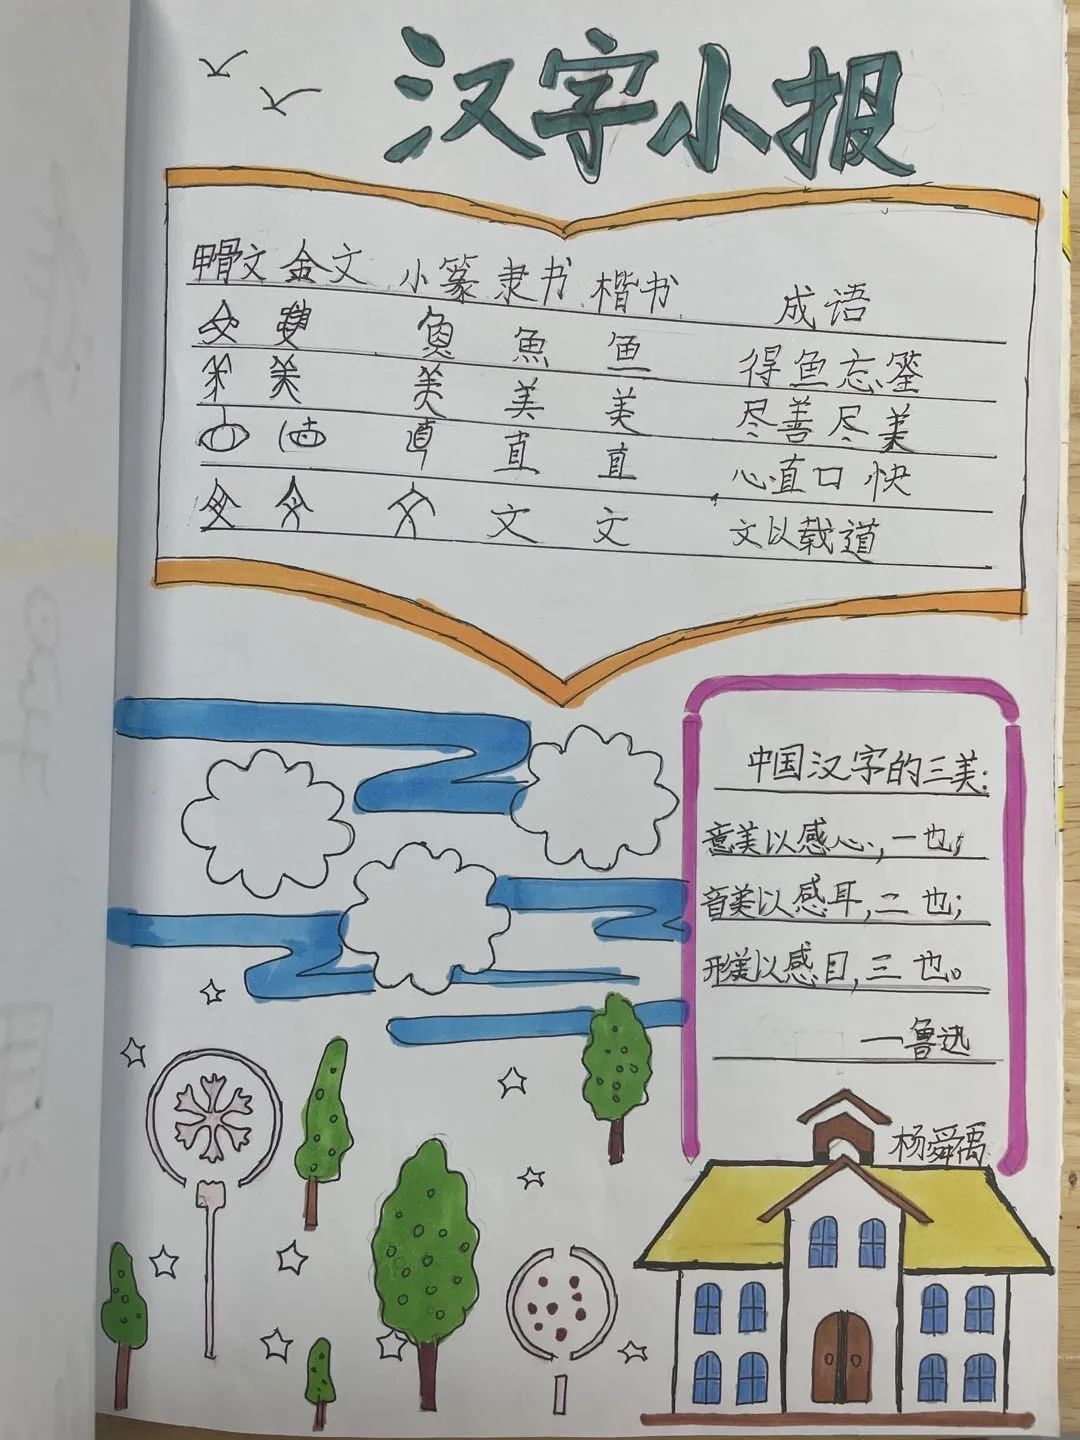 汉字小报
甲骨文 金文 小篆 隶书 楷书 成语
魚 魚 鱼 得鱼忘筌
美 美 美 美 尽善尽美
直 直 直 心直口快
文 文 文以载道
中国汉字的三美:
意美以感心,一也;
音美以感耳,二也;
形美以感目,三也。
一鲁迅
杨舜禹